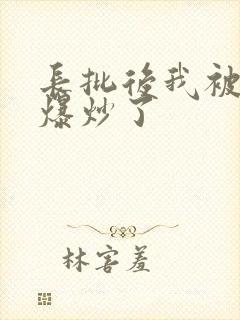 長批後我被
爆炒了
林害羞